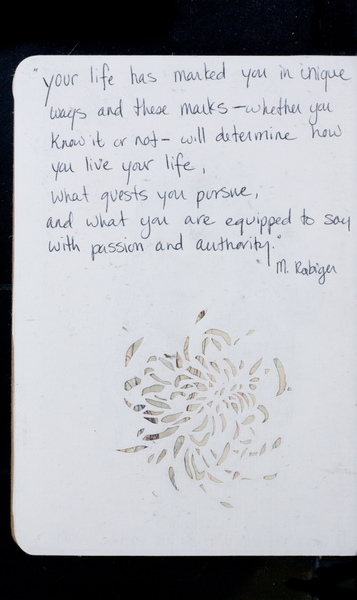 "your life has marked you in unique
ways and these marks – whether you
know it or not – will determine how
you live your life,
what quests you pursue,
and what you are equipped to say
with passion and authority."
M. Rabiger